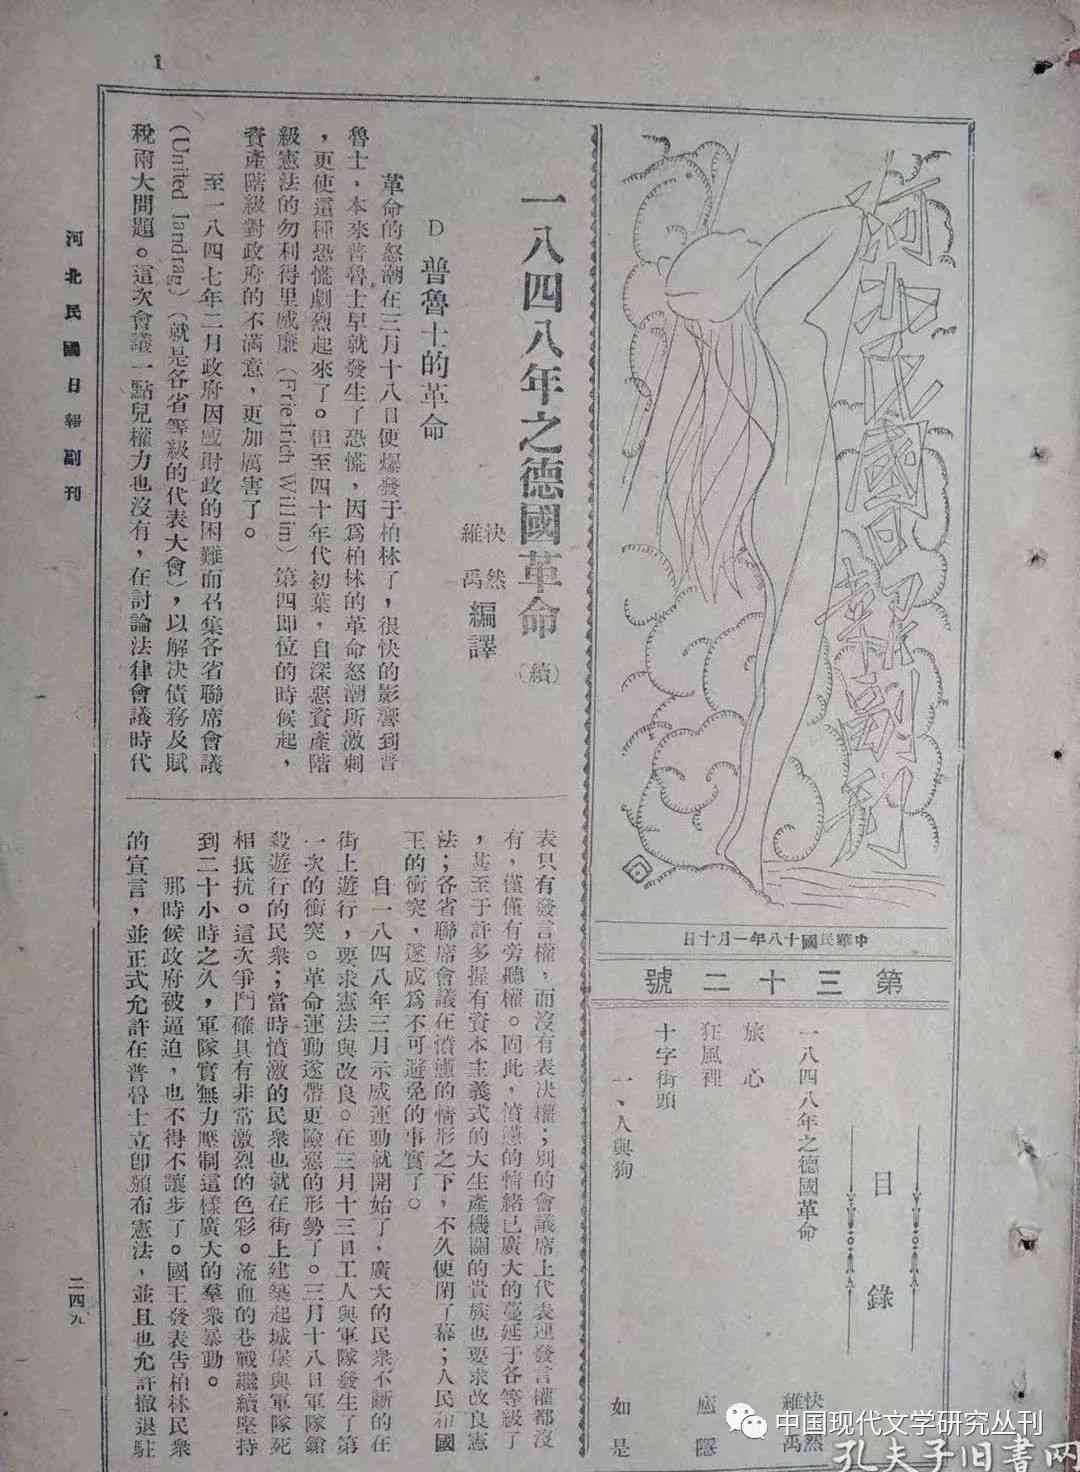 河北民國日報副刊
中華民國十八年一月十日
第三十二號
目錄
一八四八年之德國革命 快然 維禹
旅心
狂風裡 廬隱
十字街頭
一、人與狗 如是
一八四八年之德國革命(續)
快然
維禹 編譯
D 普魯士的革命
革命的怒潮在三月十八日便爆發于柏林了，很快的影響到普
魯士，本來普魯士早就發生了恐慌，因爲柏林的革命怒潮所激刺
，更使這種恐慌劇烈起來了。但至四十年代初葉，自深惡資產階
級憲法的勿利得里威廉(Friedrich Willim)第四即位的時候起，
資產階級對政府的不滿意，更加厲害了。
至一八四七年二月政府因感財政的困難而召集各省聯席會議
(United landrag)(就是各省等級的代表大會)，以解決債務及賦
稅兩大問題。這次會議一點兒權力也沒有，在討論法律會議時代
表只有發言權，而沒有表決權；別的會議席上代表連發言權都沒
有，僅僅有旁聽權。因此，憤懣的情緒已廣大的蔓延于各等級了
，甚至于許多握有資本主義式的大生產機關的貴族也要求改良憲
法；各省聯席會議在憤懣的情形之下，不久便閉了幕；人民和國
王的衝突，遂成爲不可避免的事實了。
自一八四八年三月示威運動就開始了，廣大的民衆不斷的在
街上遊行，要求憲法與改良。在三月十三日工人與軍隊發生了第
一次的衝突。革命運動遂帶更險惡的形勢了。三月十八日軍隊鎗
殺遊行的民衆；當時憤激的民衆也就在街上建築起城堡與軍隊死
相抵抗。這次爭鬥確具有非常激烈的色彩。流血的巷戰繼續堅持
到二十小時之久，軍隊實無力壓制這樣廣大的羣衆暴動。
那時候政府被逼迫，也不得不讓步了。國王發表告柏林民衆
的宣言，並正式允許在普魯士立卽頒布憲法，並且也允許撤退駐
河北民國日報副刊
二四九
1
中国现代文学研究丛刊
孔夫子旧书网